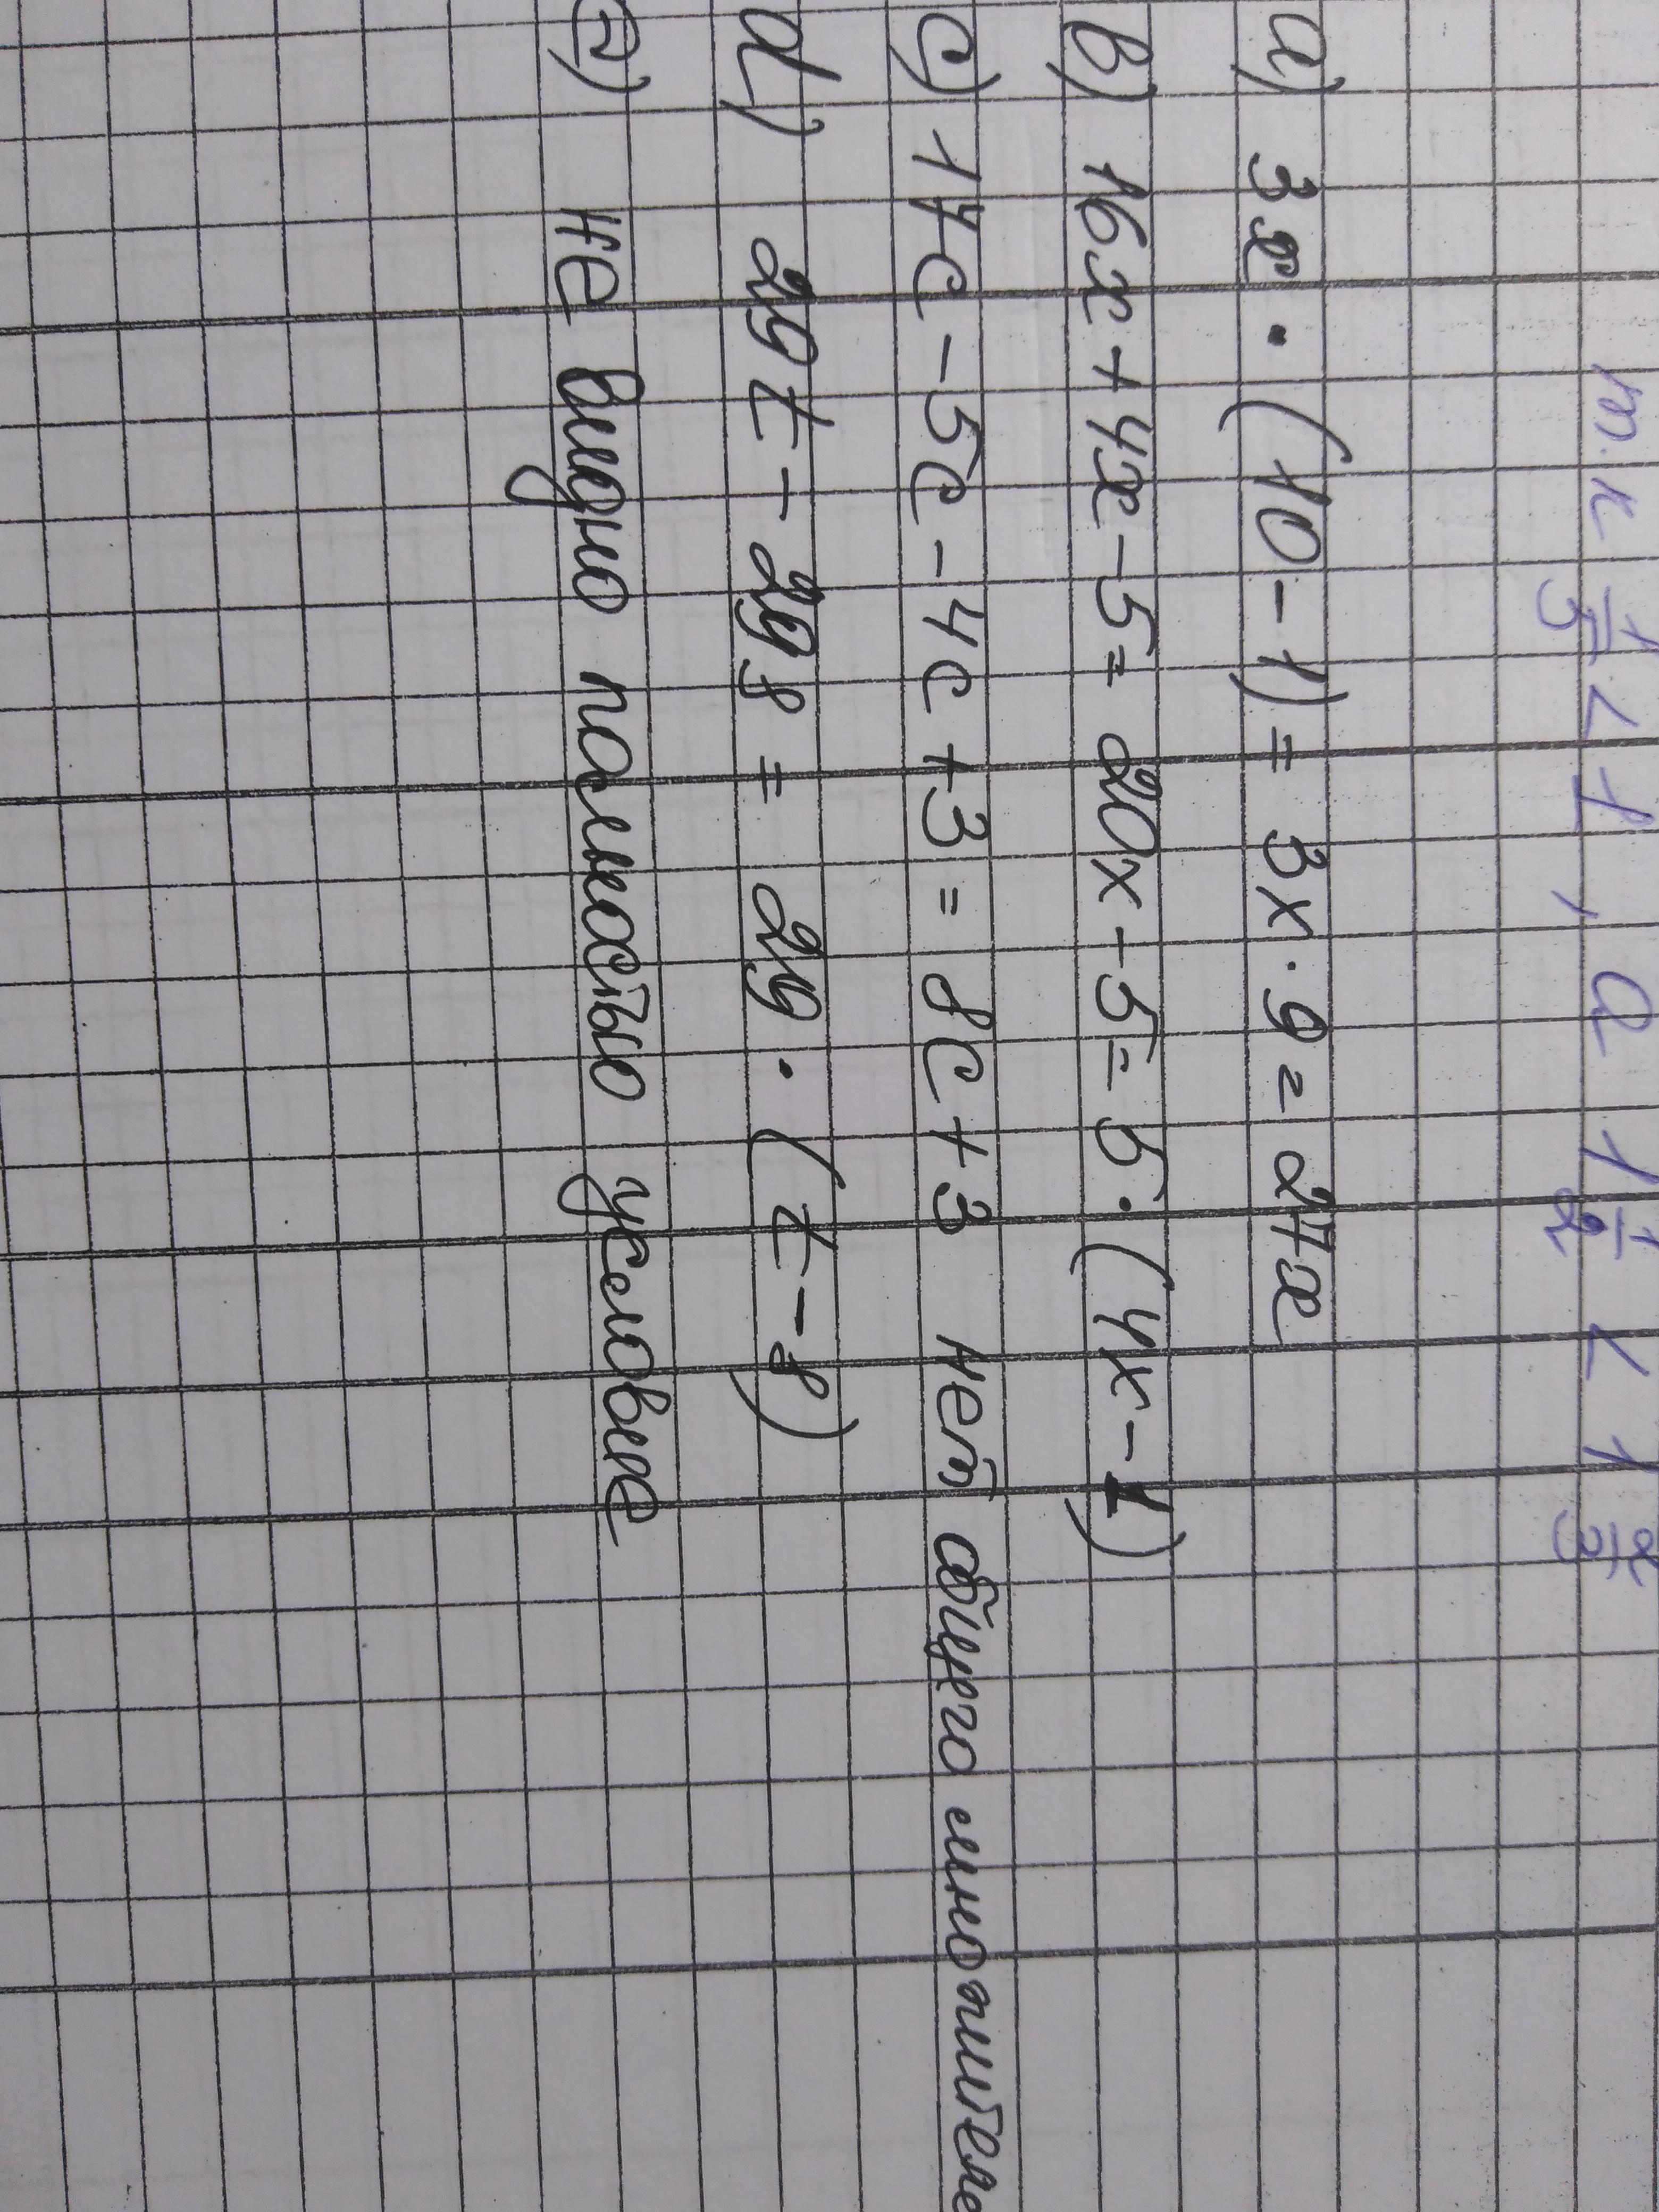 т.к 1/5 < 1, а 1 1/2 < 1 2/3
a) 3x · (10 - 1) = 3x · 9 = 27x
b) 16x + 4x - 5 = 20x - 5 = 5 · (4x - 1)
c) 17c - 5c - 4c + 3 = 8c + 3 нет общего множителя
d) 29t - 29s = 29 · (t - s)
e) не видно полностью условие